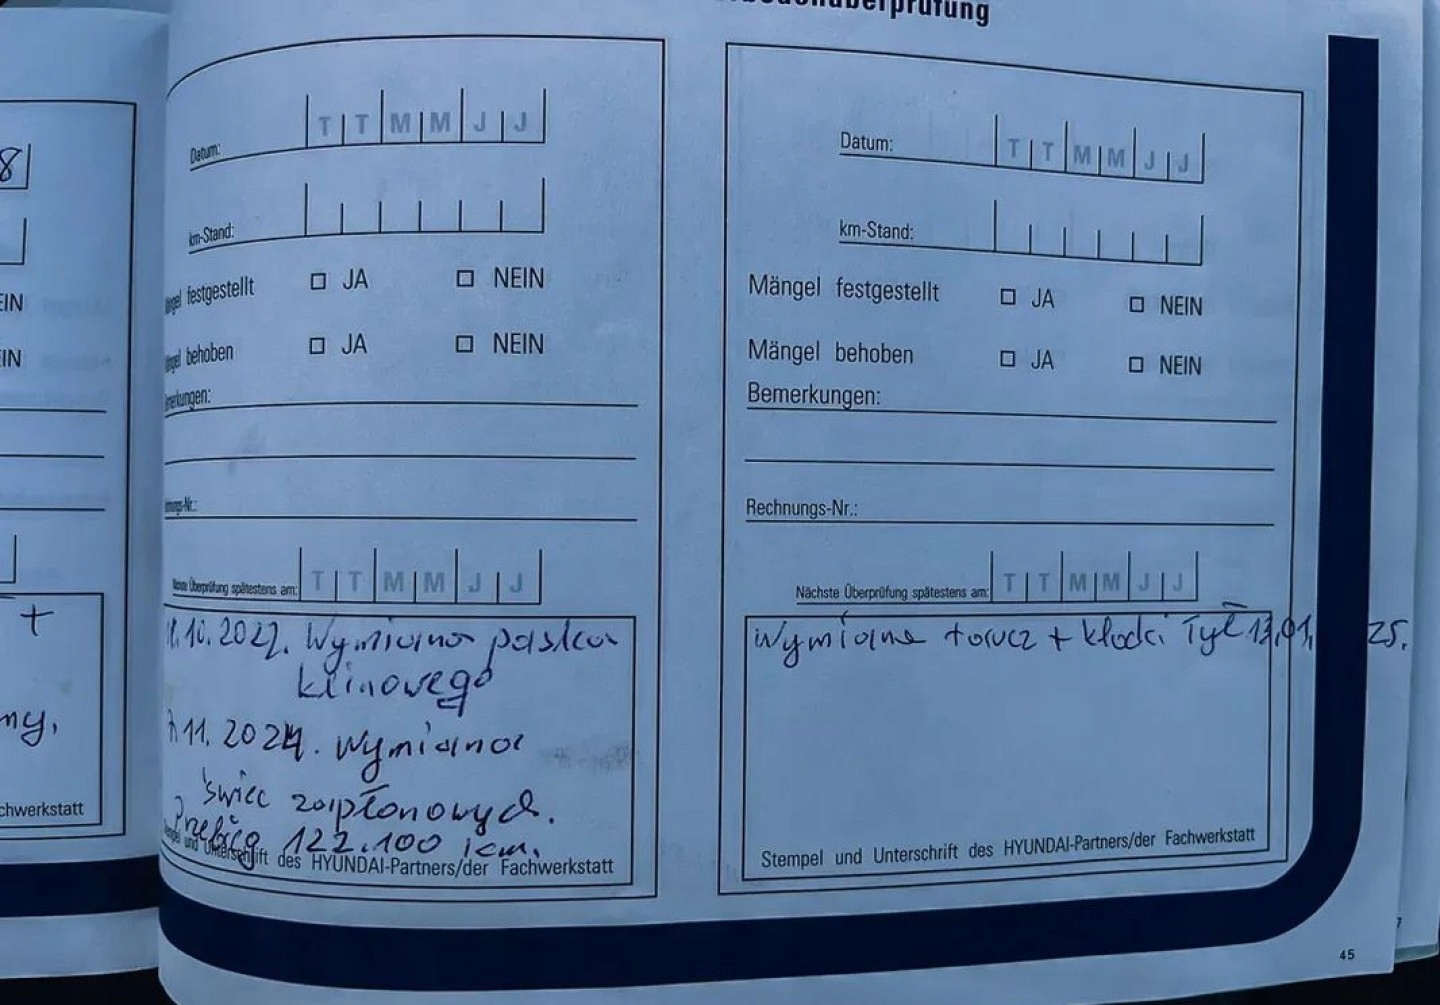 8
EIN
EIN
+
ny,
chwerkstatt
Datum:
T T M M J J
km-Stand:
festgestellt JA NEIN
behoben JA NEIN
merkungen:
hnungs-Nr.:
Überprüfung spätestens am: T T M M J J
.10.2022. Wymiana paska
klinowego
11.2024. Wymiana
świec zapłonowych.
Przebieg 122.100 km.
und Unterschrift des HYUNDAI-Partners/der Fachwerkstatt
Datum: T T M M J J
km-Stand:
Mängel festgestellt JA NEIN
Mängel behoben JA NEIN
Bemerkungen:
Rechnungs-Nr.:
Nächste Überprüfung spätestens am: T T M M J J
Wymiana tarcz + klocki Tył 13.01. 25.
Stempel und Unterschrift des HYUNDAI-Partners/der Fachwerkstatt
45
7